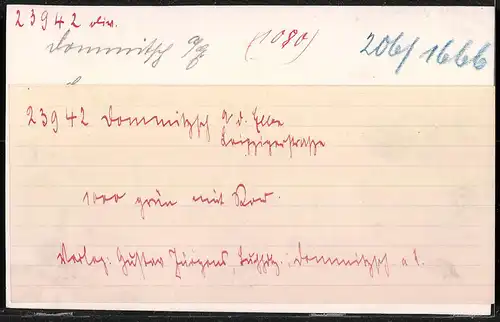 23942
Dommitsch a/E (1080) 206/ 1666
23942 Dommitzsch a. d. Elbe
Leipzigerstraße
1000 grün mit
Verlag: Gustav Jürgens, Buchhdg. Dommitzsch a. E.